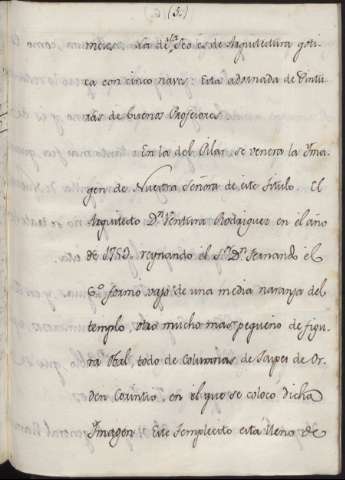 (5.)
mérs. La de la Seo es de Arquitectura goti
ca con cinco naves: Esta adornada de Pintu
ras de buenos Profesores.
En la del Pilar se venera la Ima
gen de Nuestra Señora de este titulo. El
Arquitecto Dn. Ventura Rodriguez en el año
de 1753. reynando el Sr. Dn. Fernando el
6o. formó vajo de una media naranja del
templo, otro mucho mas pequeño de figu
ra Obal, todo de Columnas de Jaspes de Or
den Corintio, en el que se colocó dicha
Imagen. Este templecito esta lleno de